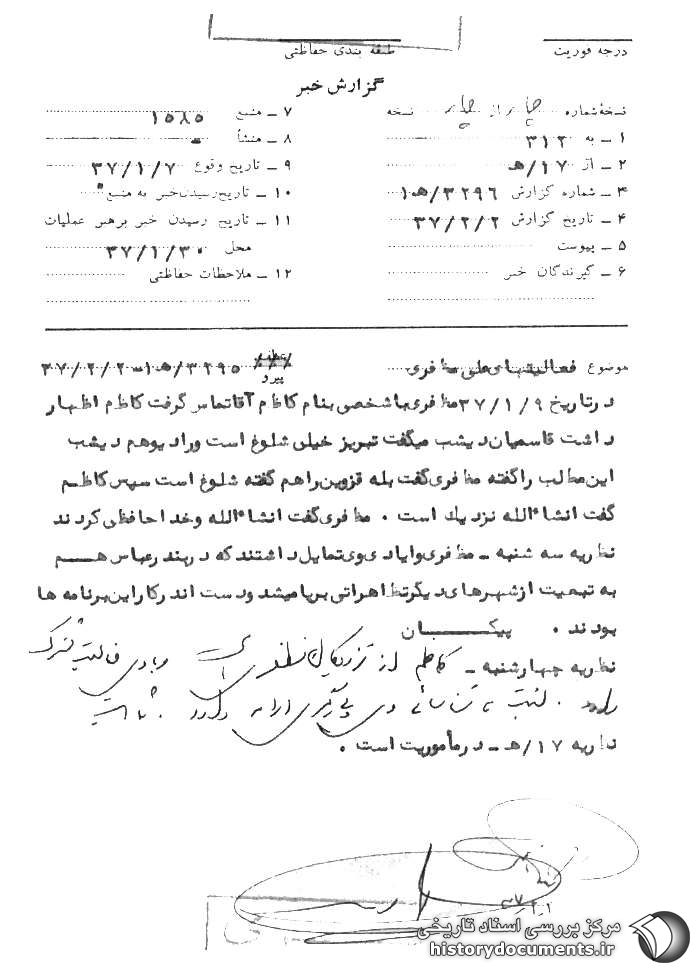 درجه فوریت
طبقه بندی حفاظتی
گزارش خبر
نسخهٔ شماره چهار از چهار نسخه
۱ ـ به ۳۱۲
۲ ـ از ۱۷/هـ
۳ ـ شماره گزارش ۱۰هـ/۳۲۹۶
۴ ـ تاریخ گزارش ۳۷/۲/۲
۵ ـ پیوست
۶ ـ گیرندگان خبر
۷ ـ منبع ۱۵۸۵
۸ ـ منشأ ـ
۹ ـ تاریخ وقوع ۳۷/۱/۷
۱۰ ـ تاریخ رسیدن خبر به منبع
۱۱ ـ تاریخ رسیدن خبر برهبر عملیات
محل ۳۷/۱/۳۰
۱۲ ـ ملاحظات حفاظتی
موضوع فعالیتهای علی مظفری
عطف
پیرو ۱۰هـ/۳۲۹۵-۳۷/۲/۲
درتاریخ ۳۷/۱/۹ مظفری باشخصی بنام کاظم آقا تماس گرفت کاظم اظهار
داشت قاسمیان دیشب میگفت تبریز خیلی شلوغ است ورادیوهم دیشب
این مطالب راگفته مظفری گفت بله قزوین راهم گفته شلوغ است سپس کاظم
گفت انشاءالله نزدیك است . مظفری گفت انشاءالله وخداحافظی کردند
نظریه سه شنبه ـ مظفری وایادی وی تمایل داشتند که دربندرعباس هم
به تبعیت ازشهرهای دیگرتظاهراتی برپا میشد ودست اندرکاراین برنامه ها
بودند . پیکان
نظریه چهارشنبه ـ کاظم از نزدیکان مظفری
است
نداریه ۱۷/هـ ـ درمأموریت است .
مرکز بررسی اسناد تاریخی
historydocuments.ir